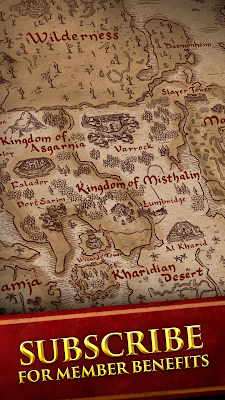 Wilderness
Daemonheim
Slayer Tower
Kingdom of
Asgarnia
Varrock
Mo
Falador
Kingdom of Misthalin
Port Sarim
Lumbridge
Wizards' Tower
Al Kharid
amja
Kharidian
Desert
SUBSCRIBE
FOR MEMBER BENEFITS